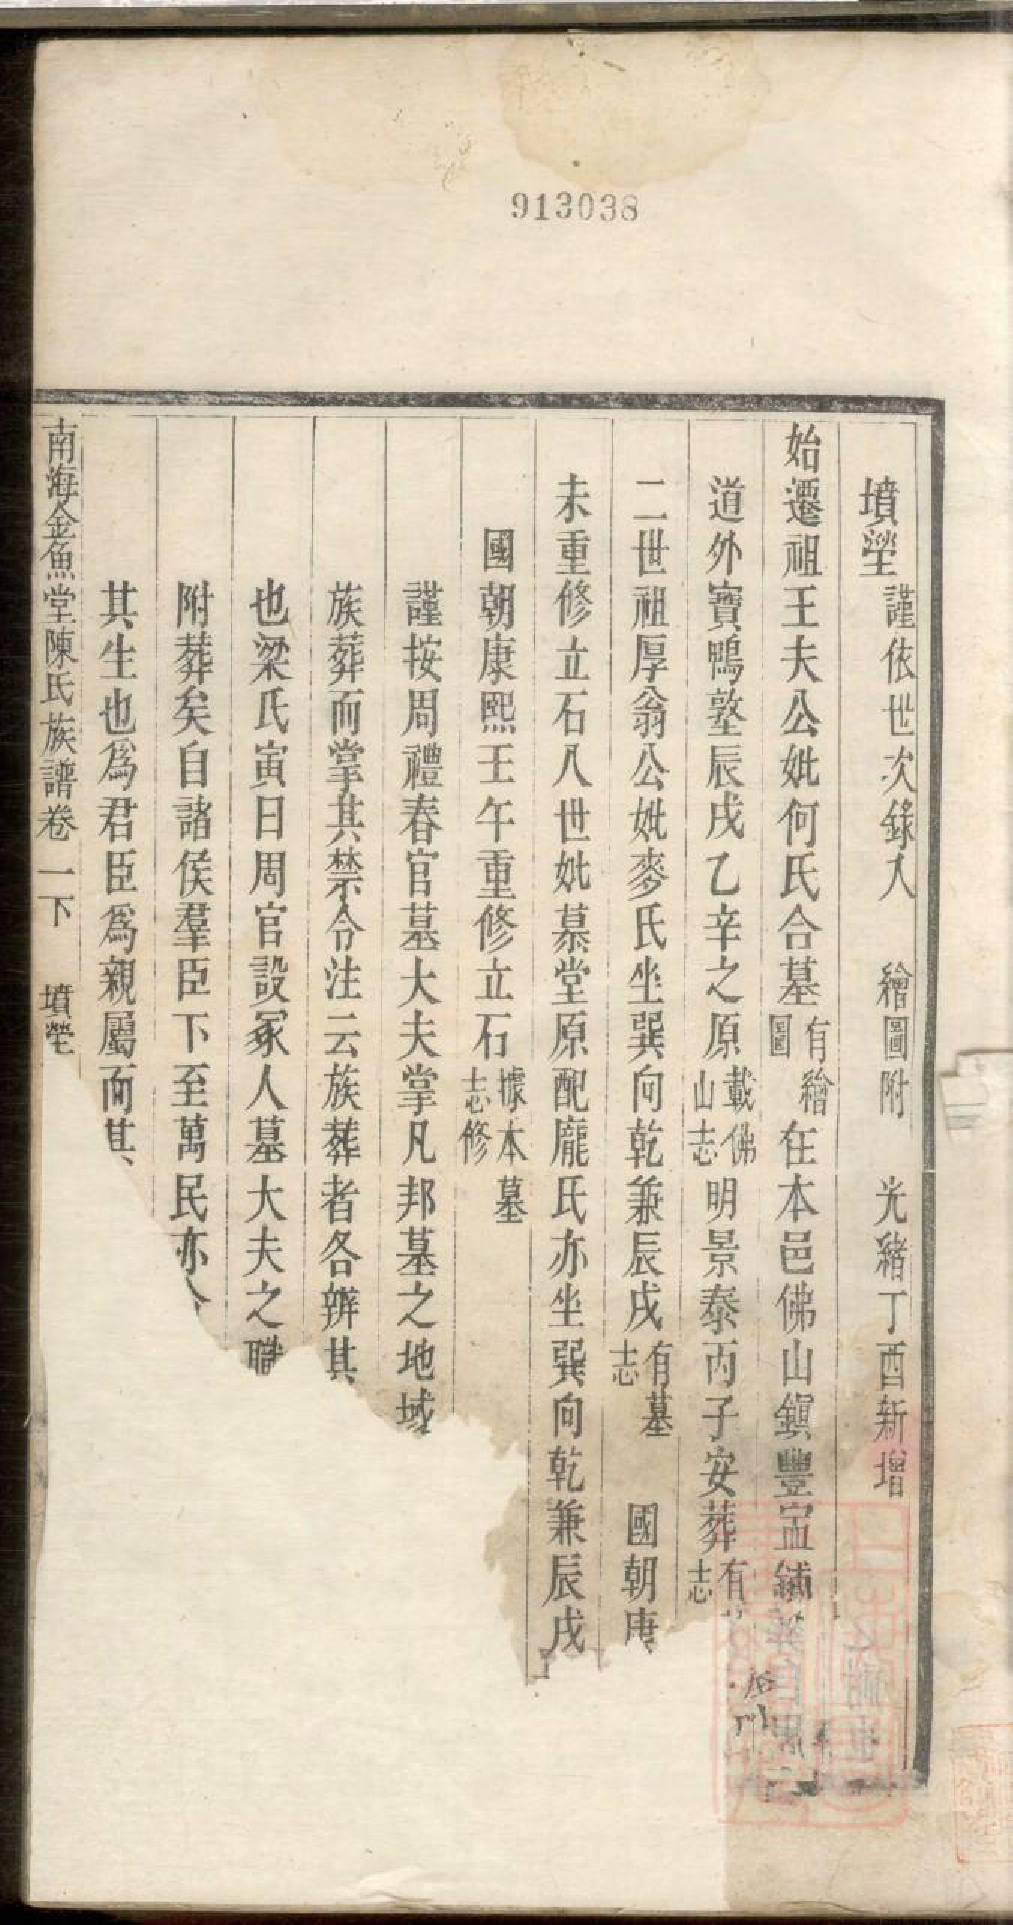 913038
墳塋 謹依世次錄入 繪圖附 光緒丁酉新增
始遷祖王夫公妣何氏合墓 有繪圖 在本邑佛山鎮豐寍鋪
道外寶鴨墪辰戌乙辛之原 載佛山志 明景泰丙子安葬 有志
二世祖厚翁公妣麥氏坐巽向乾兼辰戌 有墓志 國朝庚
未重修立石八世妣慕堂原配龐氏亦坐巽向乾兼辰戌
國朝康熙壬午重修立石 據本墓志修
謹按周禮春官墓大夫掌凡邦墓之地域
族葬而掌其禁令注云族葬者各辨其
也梁氏寅曰周官設冢人墓大夫之職
附葬矣自諸侯羣臣下至萬民亦
其生也爲君臣爲親屬而其
南海金魚堂陳氏族譜卷一下 墳塋